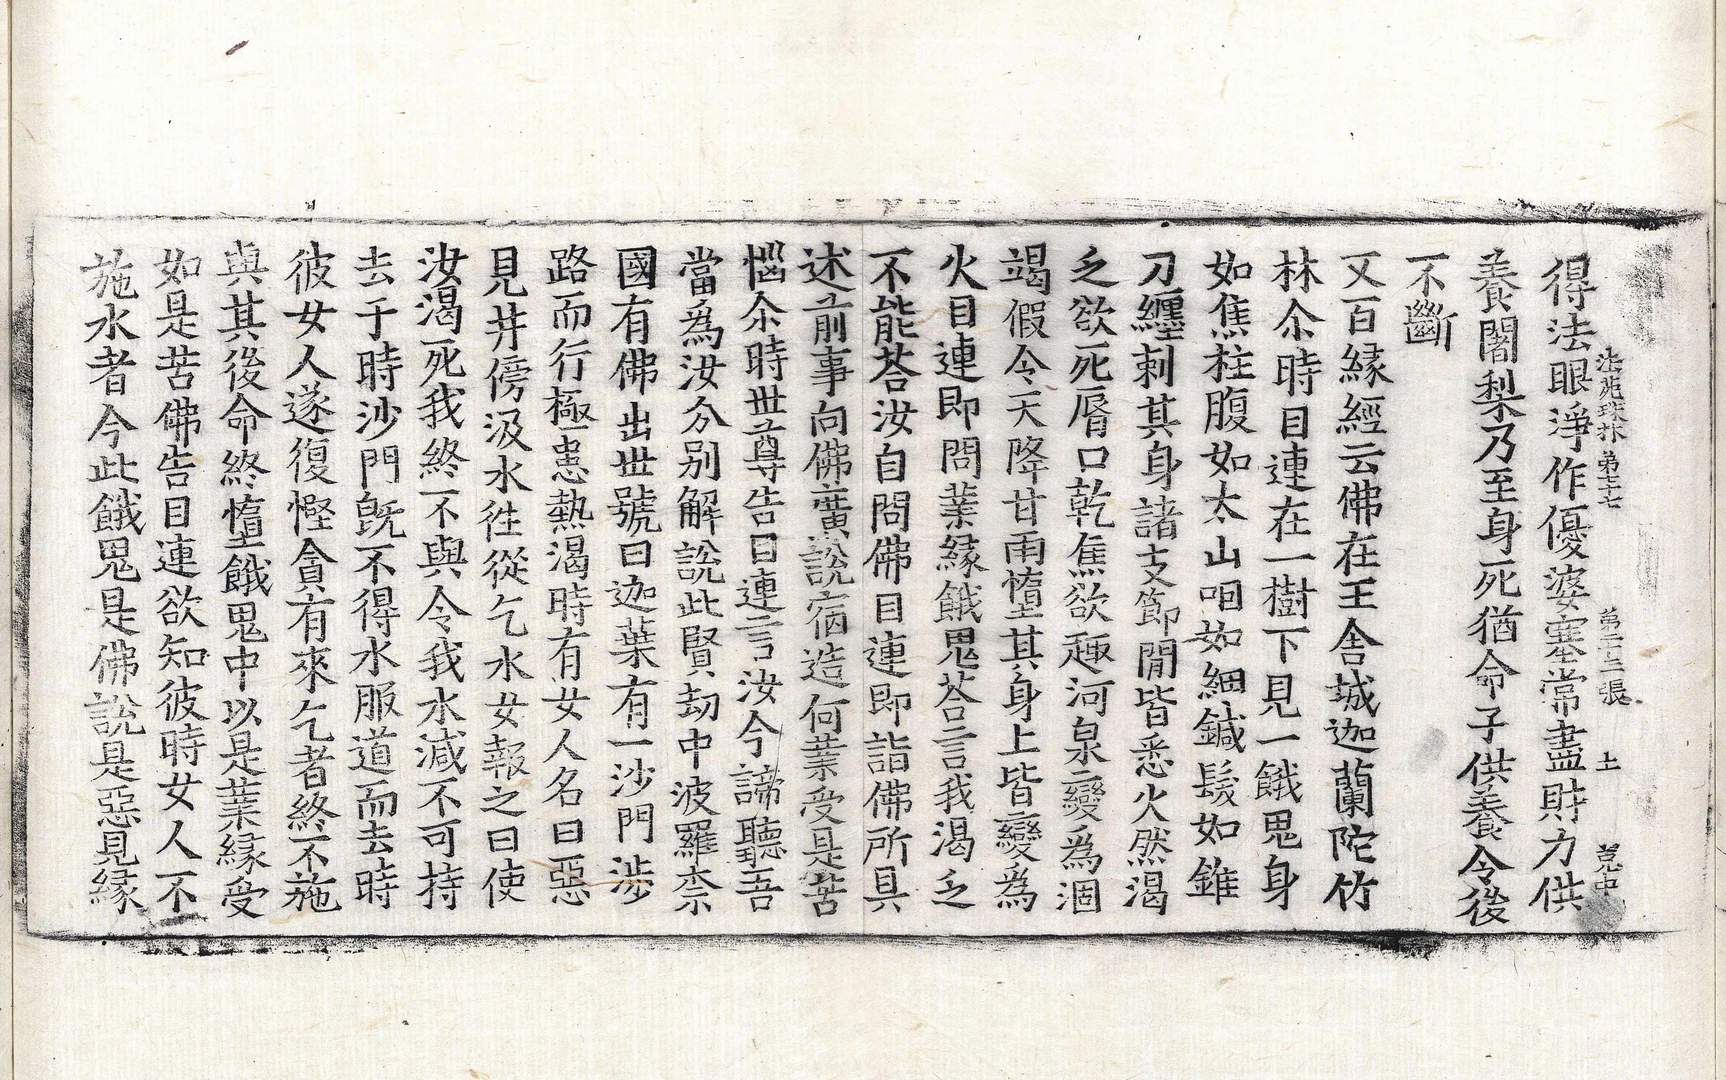 得法眼淨作優婆塞常盡財力供
法苑珠林 第七七 第二十二張 土
養闍梨乃至身死猶命子供養令後
不斷
又百緣經云佛在王舍城迦蘭陀竹
林尒時目連在一樹下見一餓鬼身
如焦柱腹如太山咽如細鍼髮如錐
刀纏刺其身諸支節閒皆悉火然渴
乏欲死脣口乾焦欲趣河泉變爲涸
竭假令天降甘雨墮其身上皆變爲
火目連即問業緣餓鬼荅言我渴乏
不能荅汝自問佛目連即詣佛所具
述前事向佛廣說宿造何業受是苦
惱尒時世尊告目連言汝今諦聽吾
當爲汝分别解說此賢劫中波羅柰
國有佛出世號曰迦葉有一沙門涉
路而行極患熱渴時有女人名曰惡
見井傍汲水徃從乞水女報之曰使
汝渴死我終不與令我水減不可持
去于時沙門旣不得水服道而去時
彼女人遂復慳貪有來乞者終不施
與其後命終墮餓鬼中以是業緣受
如是苦佛告目連欲知彼時女人不
施水者今此餓鬼是佛說是惡見緣